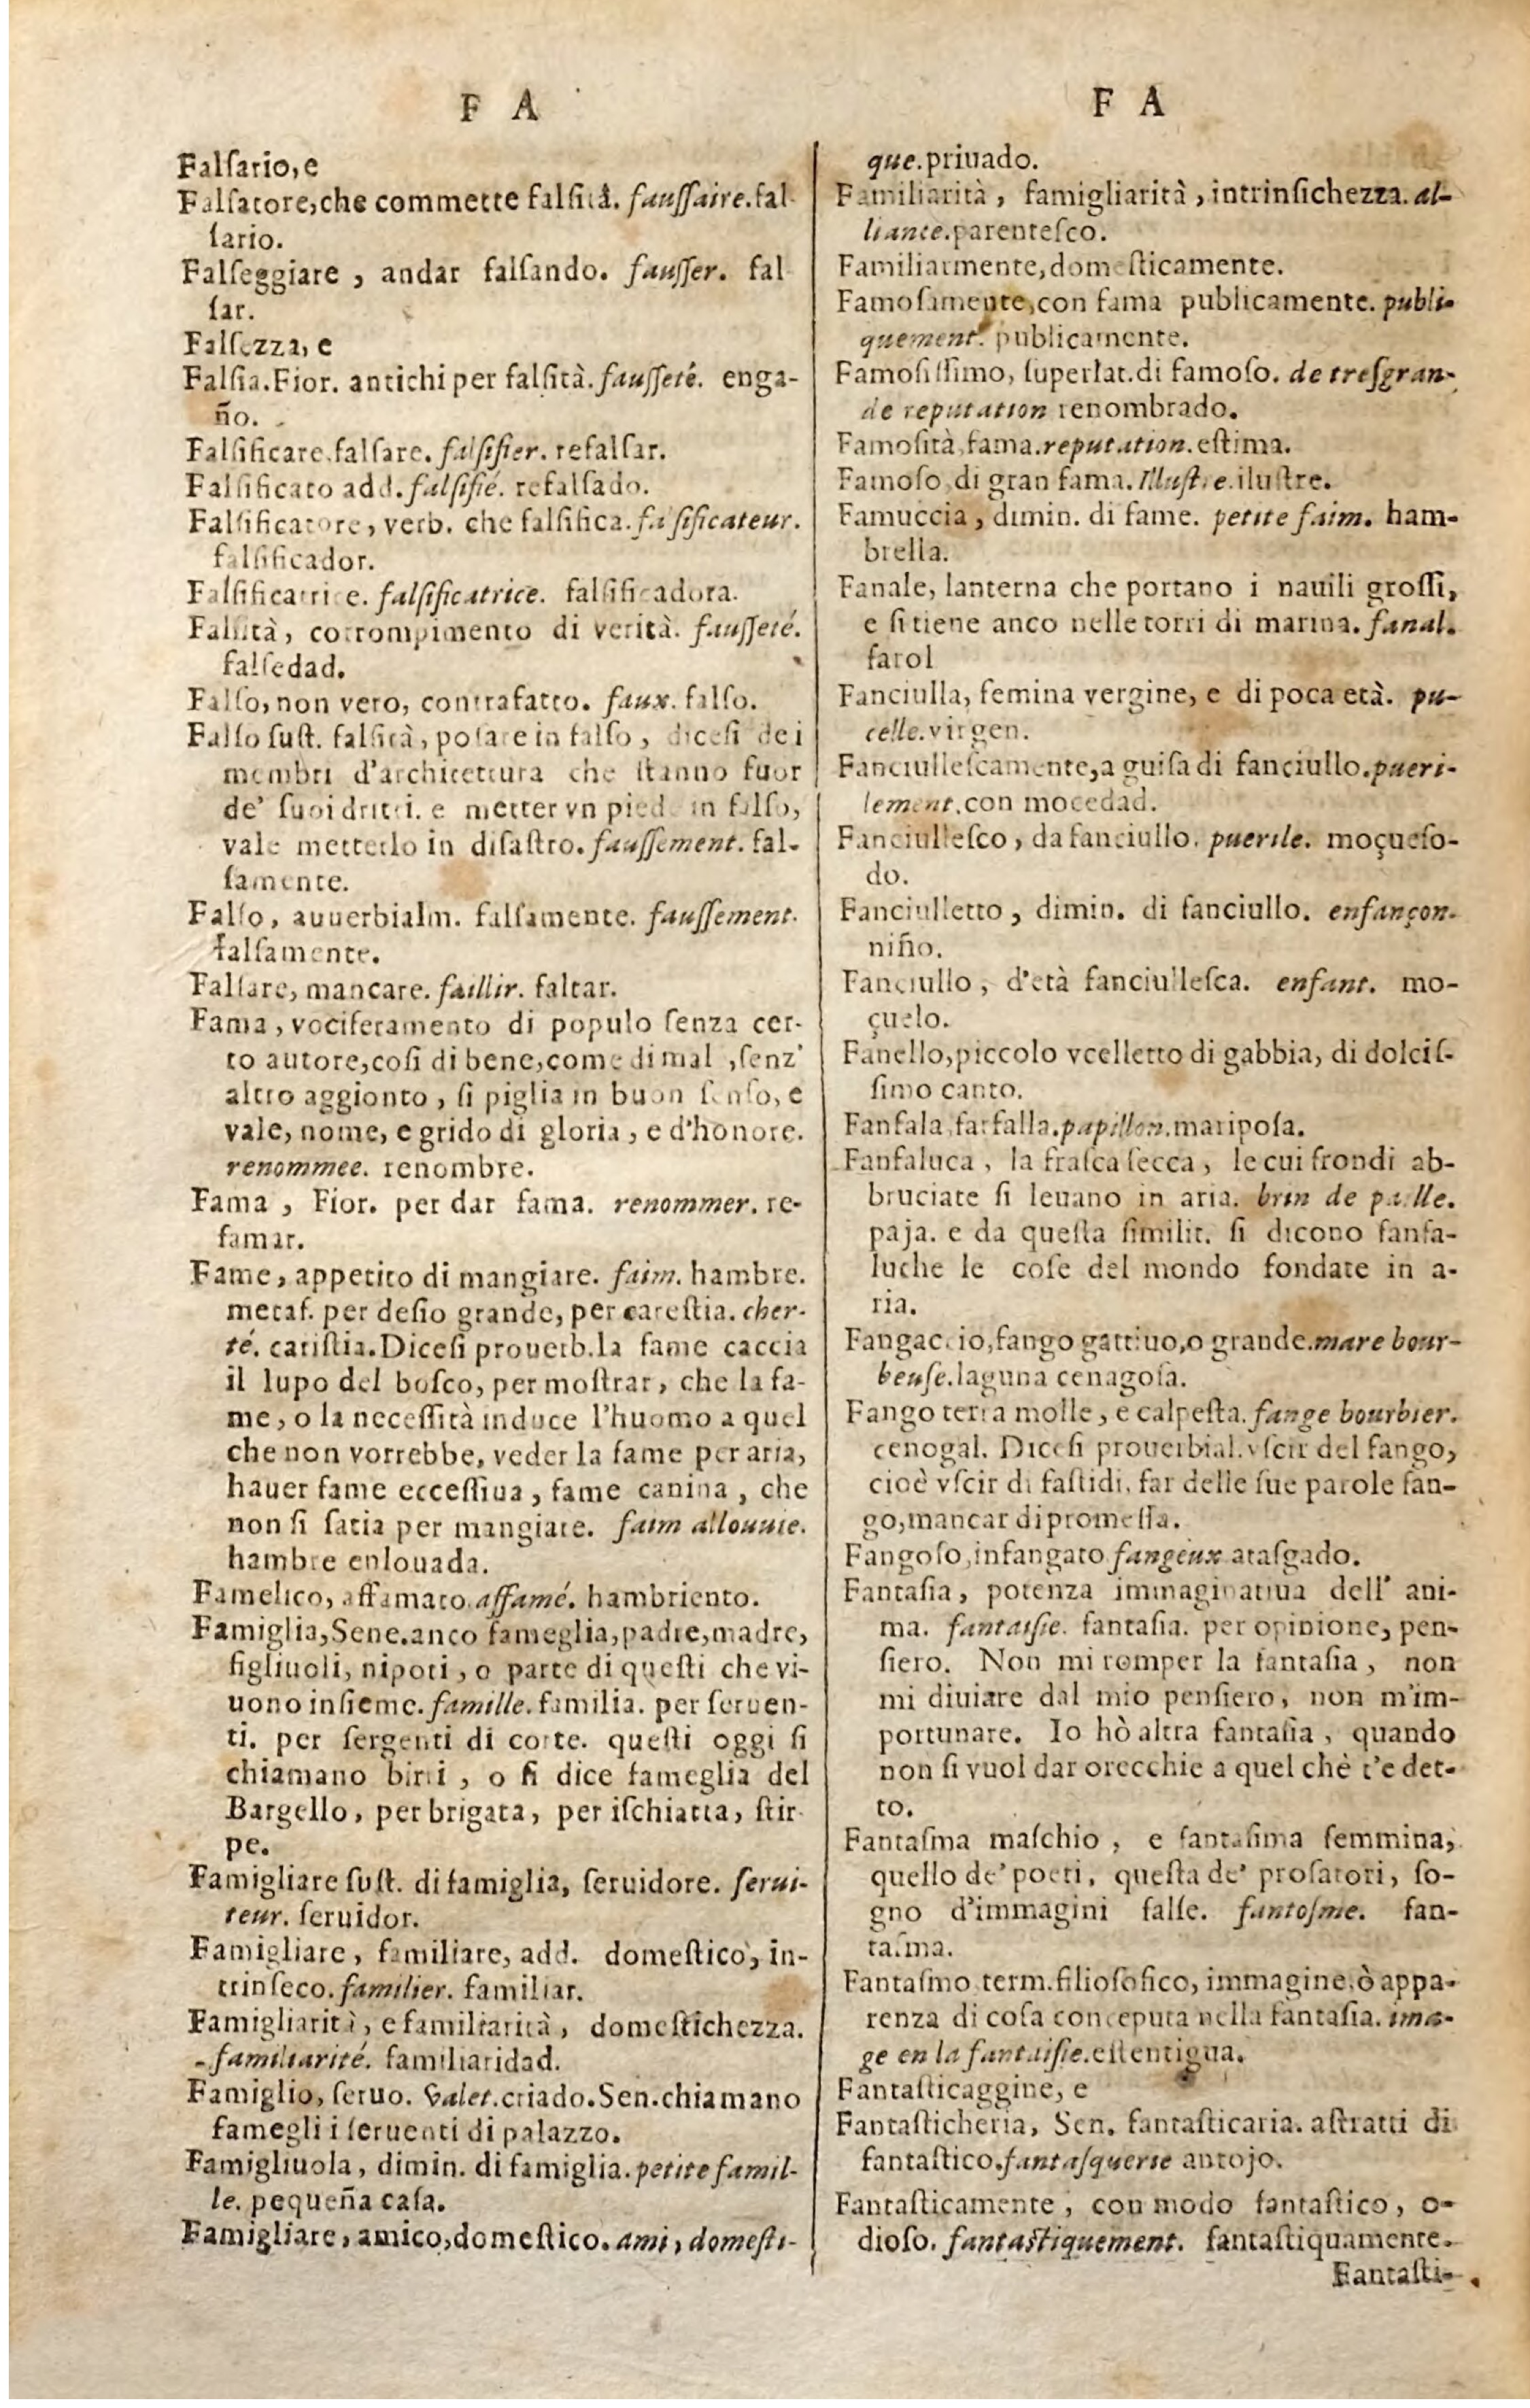 F A
Falſario, e
Falſatore, che commette falſità. fauſſaire. fal-
ſario.
Falſeggiare, andar falſando. fauſſer. fal
ſar.
Falſezza, e
Falſia. Fior. antichi per falſità. fauſſeté. enga-
ño.
Falſificare, falſare. falſifier. refalſar.
Falſificato add. falſifié. refalſado.
Falſificatore, verb. che falſifica. falſificateur.
falſificador.
Falſificatrice. falſificatrice. falſificadora.
Falſità, corrompimento di verità. fauſſeté.
falſedad.
Falſo, non vero, contrafatto. faux. falſo.
Falſo ſuſt. falſità, poſare in falſo, diceſi dei
membri d'architettura che ſtanno fuor
de' ſuoi dritti. e metter vn piede in falſo,
vale metterlo in diſaſtro. fauſſement. fal-
ſamente.
Falſo, auuerbialm. falſamente. fauſſement.
falſamente.
Fallare, mancare. faillir. faltar.
Fama, vociferamento di populo ſenza cer-
to autore, coſi di bene, come di mal, ſenz'
altro aggionto, ſi piglia in buon ſenſo, e
vale, nome, e grido di gloria, e d'honore.
renommee. renombre.
Fama, Fior. per dar fama. renommer. re-
famar.
Fame, appetito di mangiare. faim. hambre.
metaf. per deſio grande, per careſtia. cher-
té. cariſtia. Diceſi prouerb. la fame caccia
il lupo del boſco, per moſtrar, che la fa-
me, o la neceſſità induce l'huomo a quel
che non vorrebbe, veder la fame per aria,
hauer fame ecceſſiua, fame canina, che
non ſi ſatia per mangiare. faim allouuie.
hambre enlouada.
Famelico, affamato. affamé. hambriento.
Famiglia, Sene. anco fameglia, padre, madre,
figliuoli, nipoti, o parte di queſti che vi-
uono inſieme. famille. familia. per ſeruen-
ti. per ſergenti di corte. queſti oggi ſi
chiamano birri, o ſi dice fameglia del
Bargello, per brigata, per iſchiatta, ſtir-
pe.
Famigliare ſuſt. di famiglia, ſeruidore. ſerui-
teur. ſeruidor.
Famigliare, familiare, add. domeſtico, in-
trinſeco. familier. familiar.
Famigliarità, e familiarità, domeſtichezza.
familiarité. familiaridad.
Famiglio, ſeruo. Valet. criado. Sen. chiamano
famegli i ſeruenti di palazzo.
Famigliuola, dimin. di famiglia. petite famil-
le. pequeña caſa.
Famigliare, amico, domeſtico. ami, domeſti-
F A
que. priuado.
Familiarità, famigliarità, intrinſichezza. al-
liance. parenteſco.
Familiarmente, domeſticamente.
Famoſamente, con fama publicamente. publi-
quement. publicamente.
Famoſiſſimo, ſuperlat. di famoſo. de treſgran-
de reputation renombrado.
Famoſità, fama. reputation. eſtima.
Famoſo, di gran fama. Illuſtre. iluſtre.
Famuccia, dimin. di fame. petite faim. ham-
brella.
Fanale, lanterna che portano i nauili groſſi,
e ſi tiene anco nelle torri di marina. fanal.
farol
Fanciulla, femina vergine, e di poca età. pu-
celle. virgen.
Fanciulleſcamente, a guiſa di fanciullo. pueri-
lement. con mocedad.
Fanciulleſco, da fanciullo. puerile. moçueſo-
do.
Fanciulletto, dimin. di fanciullo. enfançon.
niño.
Fanciullo, d'età fanciulleſca. enfant. mo-
çuelo.
Fanello, piccolo vcelletto di gabbia, di dolciſ-
ſimo canto.
Fanfala, farfalla. papillon. maripoſa.
Fanfaluca, la fraſca ſecca, le cui frondi ab-
bruciate ſi leuano in aria. brin de paille.
paja. e da queſta ſimilit. ſi dicono fanfa-
luche le coſe del mondo fondate in a-
ria.
Fangaccio, fango gattiuo, o grande. mare bour-
beuſe. laguna cenagoſa.
Fango terra molle, e calpeſta. fange bourbier.
cenogal. Diceſi prouerbial. vſcir del fango,
cioè vſcir di faſtidi, far delle ſue parole fan-
go, mancar di promeſſa.
Fangoſo, infangato fangeux ataſgado.
Fantaſia, potenza immaginatiua dell' ani-
ma. fantaiſie. fantaſia. per opinione, pen-
ſiero. Non mi romper la fantaſia, non
mi diuiare dal mio penſiero, non m'im-
portunare. Io hò altra fantaſia, quando
non ſi vuol dar orecchie a quel chè t'e det-
to.
Fantaſma maſchio, e fantaſima femmina,
quello de' poeti, queſta de' proſatori, ſo-
gno d'immagini falſe. fantoſme. fan-
taſma.
Fantaſmo term. filioſofico, immagine, ò appa-
renza di coſa conceputa nella fantaſia. ima-
ge en la fantaiſie. eſtentigua.
Fantaſticaggine, e
Fantaſticheria, Sen. fantaſticaria. aſtratti di
fantaſtico. fantaſquerie antojo.
Fantaſticamente, con modo fantaſtico, o-
dioſo. fantaſtiquement. fantaſtiquamente.
Fantaſti-